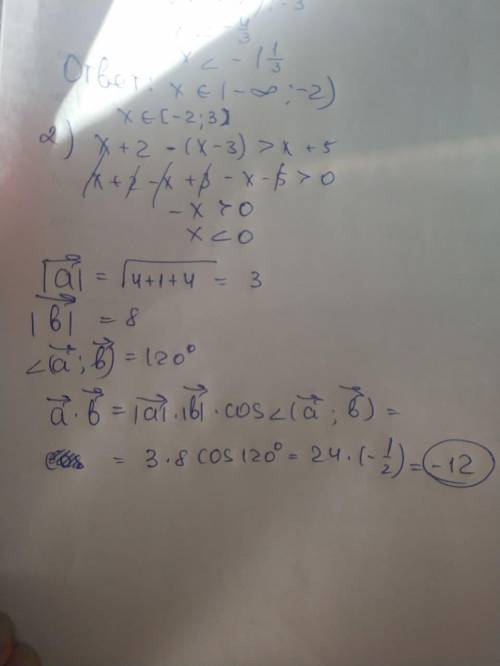 x < -1 1/3
Ответ: x ∈ (-∞; -2)
2) x ∈ [-2; 3]
x + 2 - (x - 3) > x + 5
x + 2 - x + 3 - x - 5 > 0
-x > 0
x < 0
|a⃗| = √4+1+4 = 3
|b⃗| = 8
∠(a⃗; b⃗) = 120°
a⃗ · b⃗ = |a⃗| · |b⃗| · cos∠(a⃗; b⃗) =
= 3 · 8 cos 120° = 24 · (-1/2) = -12